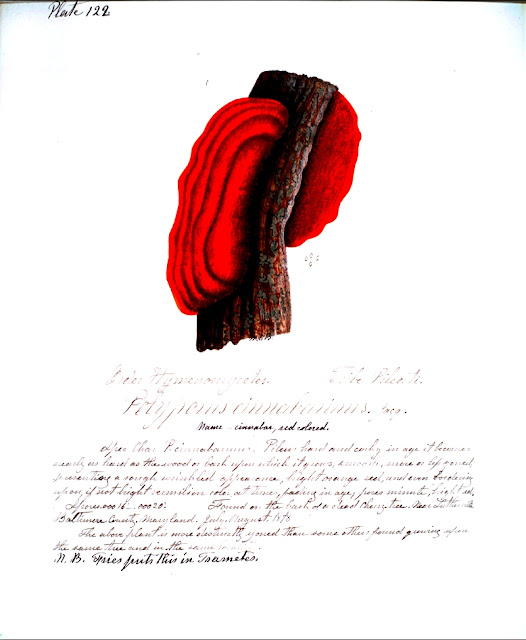 Plate 122
Order Hymenomycetes. Tribe Pileati.
Polyporus cinnabarinus. Jacq.
Name – cinnabar, red colored.
Spec. Char. P. cinnabarinus. Pileus hard and corky, in age it becomes
nearly as hard as the wood or bark upon which it grows, smooth, more or less zoned,
presenting a rough wrinkled appearance, bright orange red, and even bordering
upon, if not bright vermilion color at times, fading in age, pores minute, light red,
Spores .00016–.00020. Found on the bark of a dead Cherry tree. Near Lutherville
Baltimore County, Maryland. July, August 1878
The above plant is more distinctly zoned than some others found growing upon
the same tree and in the same
N. B. Fries puts this in Trametes.